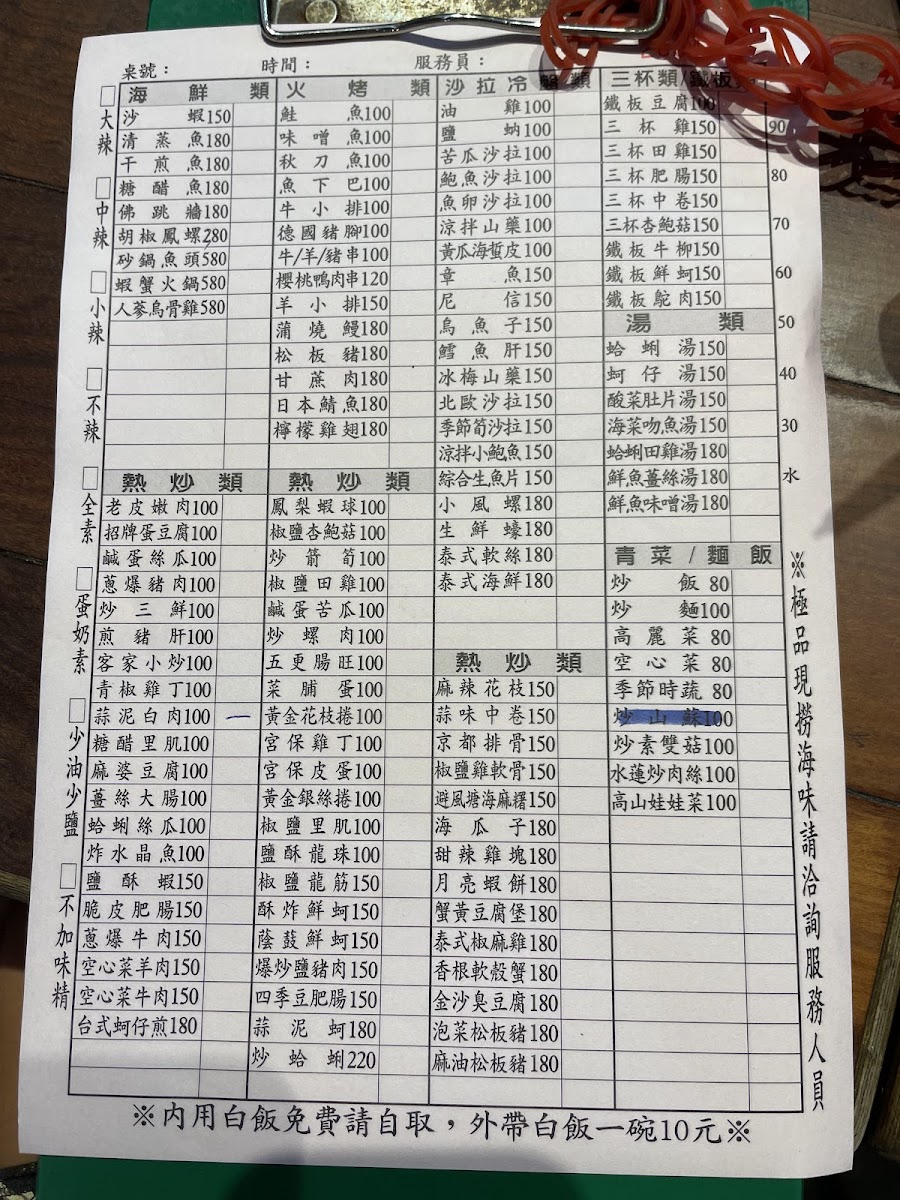 桌號：
時間：
服務員：
大辣
中辣
小辣
不辣
全素
蛋奶素
少油少鹽
不加味精
海鮮類
沙蝦150
清蒸魚180
干煎魚180
糖醋魚180
佛跳牆180
胡椒鳳螺280
砂鍋魚頭580
蝦蟹火鍋580
人蔘烏骨雞580
熱炒類
老皮嫩肉100
招牌蛋豆腐100
鹹蛋絲瓜100
蔥爆豬肉100
炒三鮮100
煎豬肝100
客家小炒100
青椒雞丁100
蒜泥白肉100
糖醋里肌100
麻婆豆腐100
薑絲大腸100
蛤蜊絲瓜100
炸水晶魚100
鹽酥蝦150
脆皮肥腸150
蔥爆牛肉150
空心菜羊肉150
空心菜牛肉150
台式蚵仔煎180
火烤類
鮭魚100
味噌魚100
秋刀魚100
魚下巴100
牛小排100
德國豬腳100
牛/羊/豬串100
櫻桃鴨肉串120
羊小排150
蒲燒鰻180
松板豬180
甘蔗肉180
日本鯖魚180
檸檬雞翅180
熱炒類
鳳梨蝦球100
椒鹽杏鮑菇100
炒箭筍100
椒鹽田雞100
鹹蛋苦瓜100
炒螺肉100
五更腸旺100
菜脯蛋100
黃金花枝捲100
宮保雞丁100
宮保皮蛋100
黃金銀絲捲100
椒鹽里肌100
鹽酥龍珠100
椒鹽龍筋150
酥炸鮮蚵150
蔭鼓鮮蚵150
爆炒鹽豬肉150
四季豆肥腸150
蒜泥蚵180
炒蛤蜊220
沙拉冷盤類
油雞100
鹽蚋100
苦瓜沙拉100
鮑魚沙拉100
魚卵沙拉100
涼拌山藥100
黃瓜海蜇皮100
章魚150
尼信150
烏魚子150
鱈魚肝150
冰梅山藥150
北歐沙拉150
季節筍沙拉150
涼拌小鮑魚150
綜合生魚片150
小風螺180
生鮮蠔180
泰式軟絲180
泰式海鮮180
熱炒類
麻辣花枝150
蒜味中卷150
京都排骨150
椒鹽雞軟骨150
避風塘海麻糬150
海瓜子180
甜辣雞塊180
月亮蝦餅180
蟹黃豆腐堡180
泰式椒麻雞180
香根軟殼蟹180
金沙臭豆腐180
泡菜松板豬180
麻油松板豬180
三杯類/鐵板
鐵板豆腐100
三杯雞150
三杯田雞150
三杯肥腸150
三杯中卷150
三杯杏鮑菇150
鐵板牛柳150
鐵板鮮蚵150
鐵板鴕肉150
湯類
蛤蜊湯150
蚵仔湯150
酸菜肚片湯150
海菜吻魚湯150
蛤蜊田雞湯180
鮮魚薑絲湯180
鮮魚味噌湯180
青菜/麵飯
炒飯80
炒麵100
高麗菜80
空心菜80
季節時蔬80
炒山蘇100
炒素雙菇100
水蓮炒肉絲100
高山娃娃菜100
90
80
70
60
50
40
30
水
※極品現撈海味請洽詢服務人員
※內用白飯免費請自取，外帶白飯一碗10元※